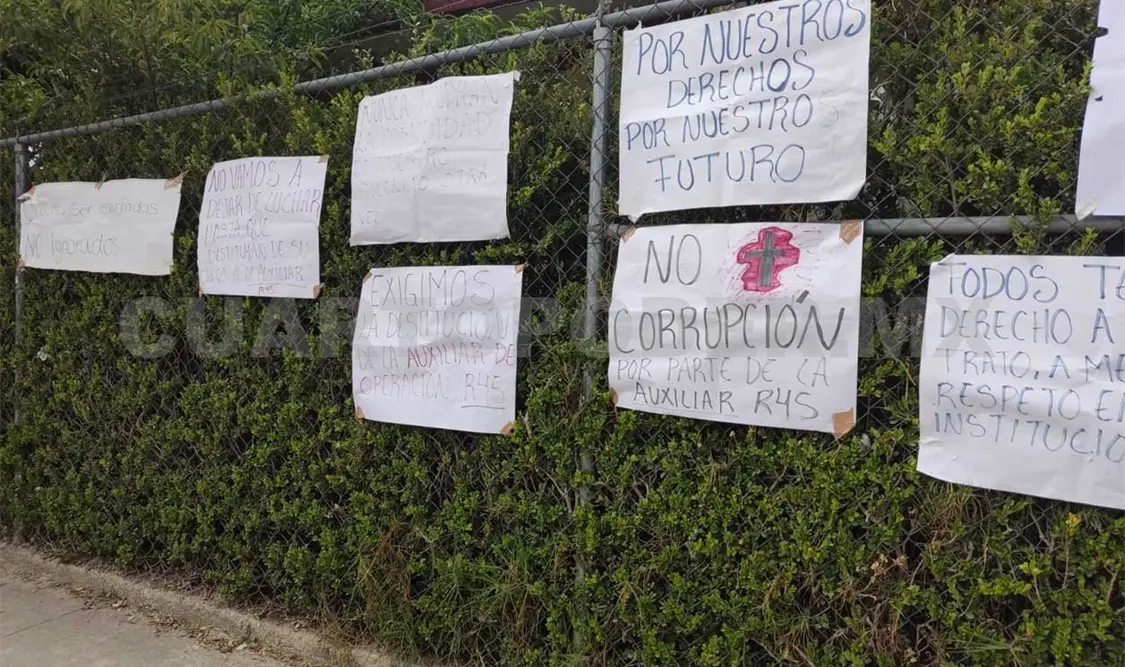 ser escuchados
NO ignorados
NO VAMOS A
DEJAR DE LUCHAR
HASTA QUE
DESTITUYAN DE SU
A LA AUXILIAR
R45
NUNCA
OTRA
VEZ
EXIGIMOS
LA DESTITUCIÓN
DE LA AUXILIAR DE
OPERACIÓN R45
POR NUESTROS
DERECHOS
POR NUESTRO
FUTURO
NO
CORRUPCIÓN
POR PARTE DE LA
AUXILIAR R45
TODOS TE
DERECHO A
TRATO, A ME
RESPETO EN
INSTITUCIO